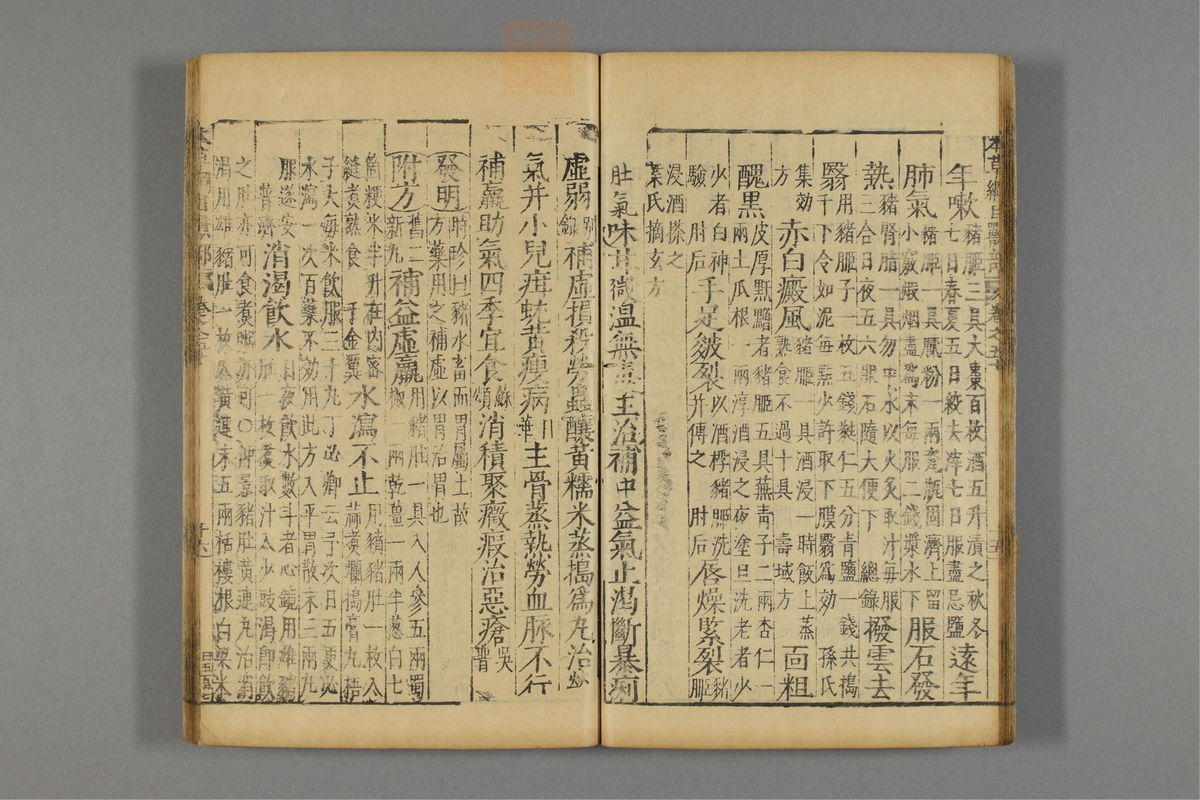 年嗽豬胰三具大棗百枚酒五升漬之秋冬七日春夏五日絞去滓七日服盡忌鹽 遠年
肺氣豬胰一具膩粉一兩瓷瓶固濟上留小竅煅烟盡為末每服二錢漿水下 服石發
熱豬腎脂一具勿中水以火炙取汁每服三合日夜五六服石隨大便下 總錄 撥雲去
翳用豬胰子一枚五錢蕤仁五分青鹽一錢共搗千下令如泥每點少許取下膜翳為効 孫氏
集効方 赤白癜風豬胰一具酒浸一時飯上蒸熟食不過十具 壽域方 面粗
醜黑皮厚䵟黯者豬胰五具蕪青子二兩杏仁一兩土瓜根一兩淳酒浸之夜塗旦洗老者少
少者白神驗 肘后 手足皴裂以酒挼豬胰洗并傅之 肘后 唇燥緊裂豬胰
浸酒搽之 葉氏摘玄方
肚氣味甘微溫無毒主治補中益氣止渴斷暴痢
虛弱別錄補虛損殺勞蟲釀黃糯米蒸搗為丸治勞
氣并小兒疳蚘黃瘦病日華主骨蒸熱勞血脈不行
補羸助氣四季宜食蘇頌消積聚癥瘕治惡瘡吳普
發明時珍曰豬水畜而胃屬土故方藥用之補虛以胃治胃也
附方舊二新九 補益虛羸用豬肚一具入人參五兩蜀椒一兩乾薑一兩半葱白七
箇粳米半升在內密縫煮熟食 千金翼 水瀉不止用豬肚一枚入蒜煮爛搗膏丸梧
子大每米飲服三十丸丁必卿云予次日五更必水瀉一次百藥不効用此方入平胃散末三兩丸
服遂安 普濟 消渴飲水日夜飲水數斗者心鏡用雄豬肚一枚煮取汁入少豉渴即飲
之肚亦可食煮粥亦可〇仲景豬肚黃連丸治消渴用雄豬肚一枚入黃連末五兩栝樓根白粱米